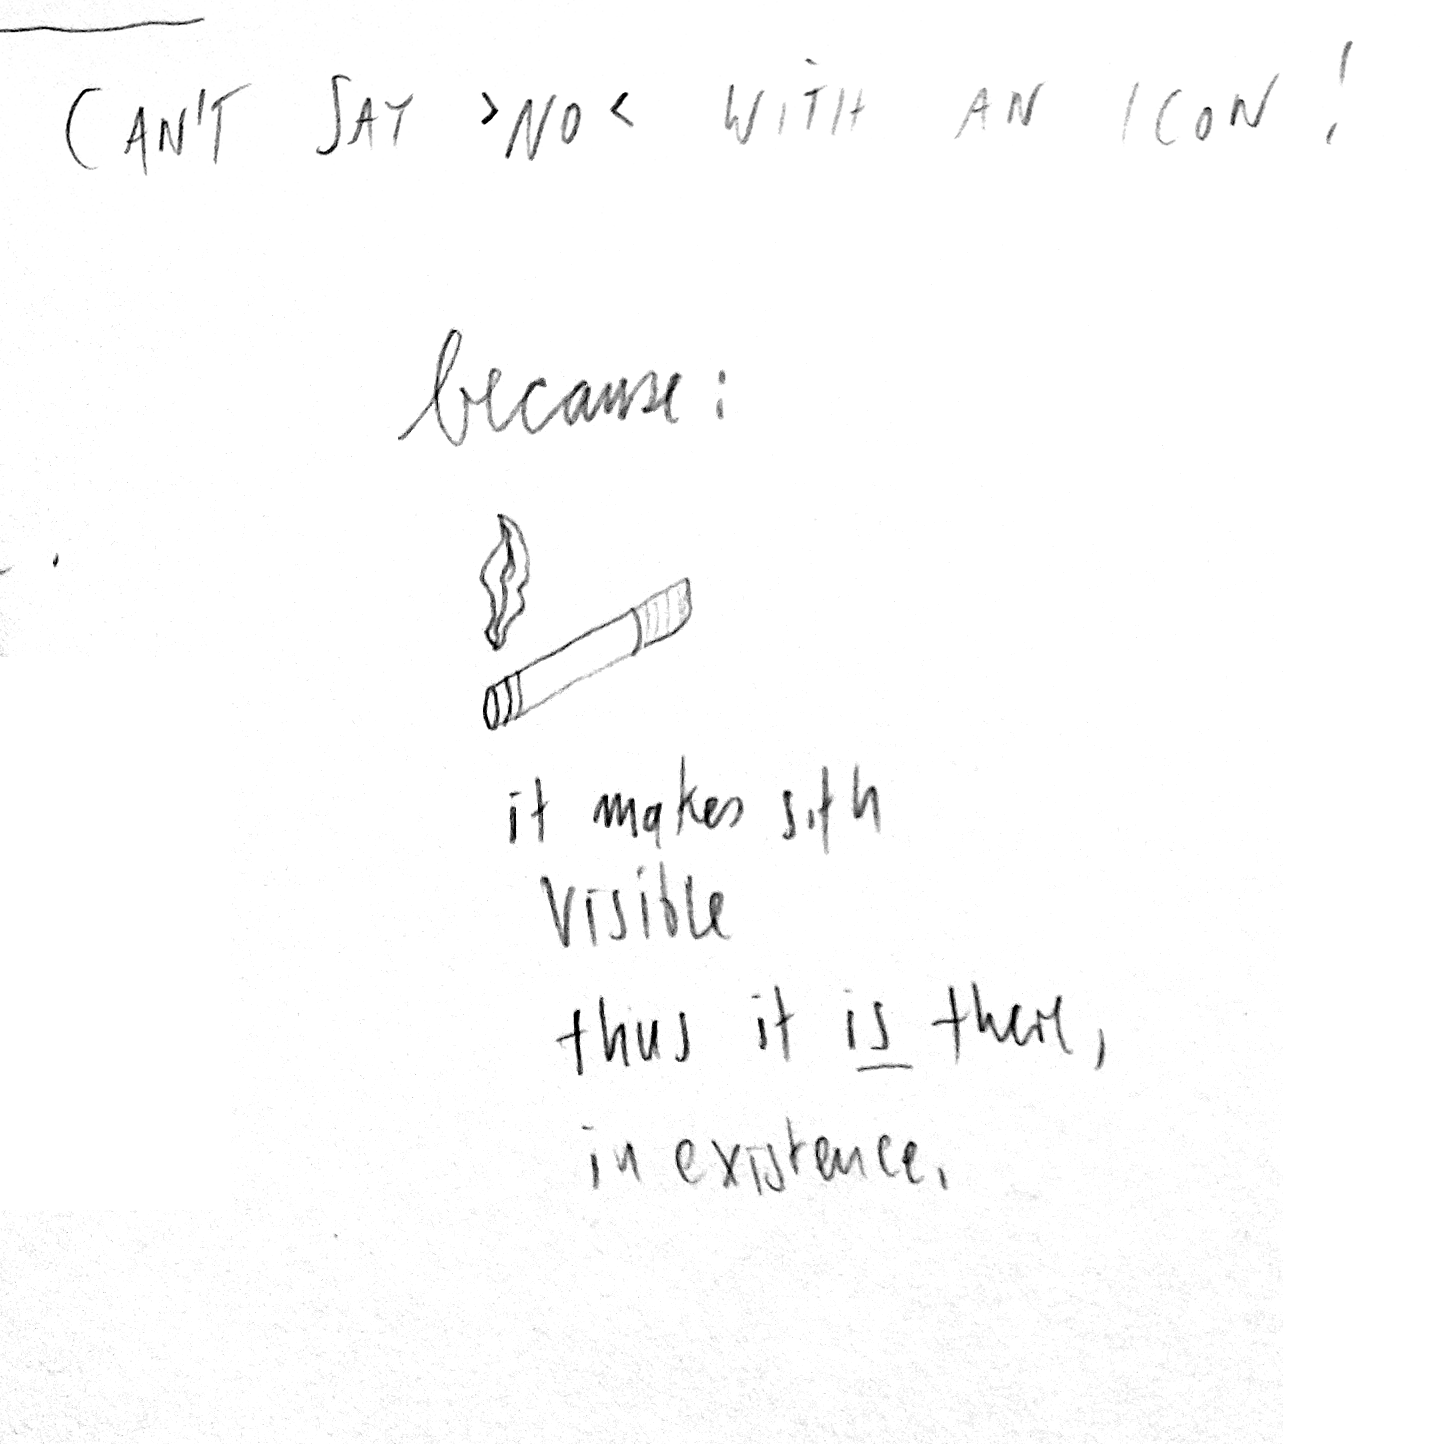 CAN'T SAY >NO< WITH AN ICON!
because:
it makes s.th
visible
thus it is there,
in existence.